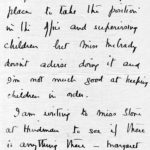 place to take the position
in the Ypsi and supervising
children but Miss McCrady
doesn't advise doing it and
I'm not much good at keeping
children in order.
I am writing to Miss Stone
at Hindman to see if there
is anything there - Margaret